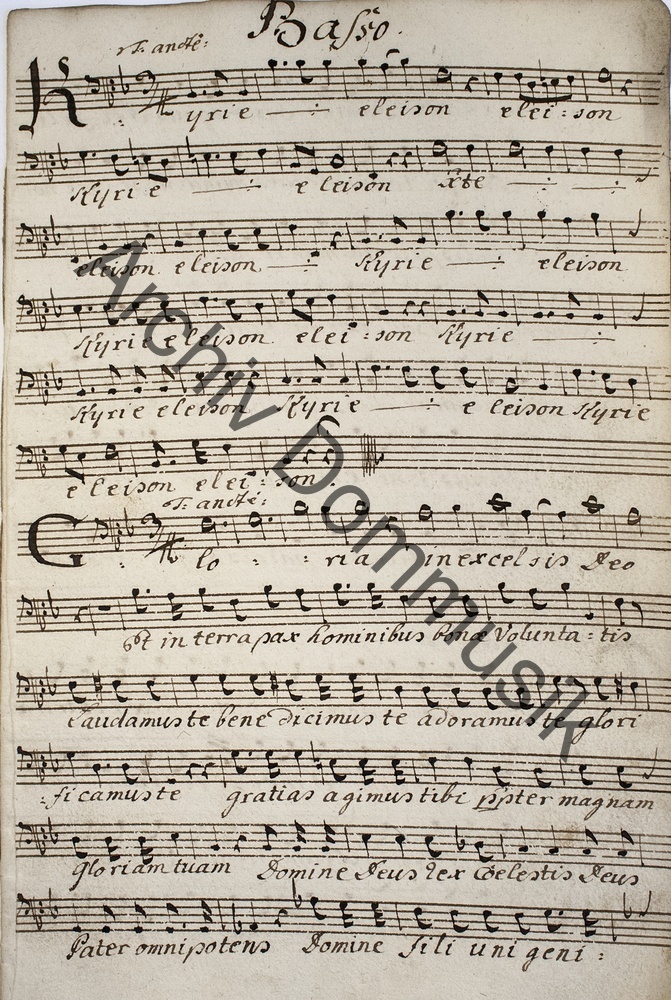 Basso.
T. andte:
Kyrie — : eleison elei : son
Kyrie — : eleison Xte — : — :
eleison eleison — : Kyrie — : eleison
Kyrie eleison elei : son Kyrie — :
Kyrie eleison Kyrie — : eleison Kyrie
eleison elei : son.
T. andte:
Glo : : ria in excelsis Deo
Et in terra pax hominibus bonæ Volunta : tis
Laudamus te bene dicimus te adoramus te glori
: ficamus te gratias agimus tibi ppter magnam
gloriam tuam Domine Deus Rex Cœlestis Deus
Pater omnipotens Domine Fili uni geni :
Archiv Dommusik